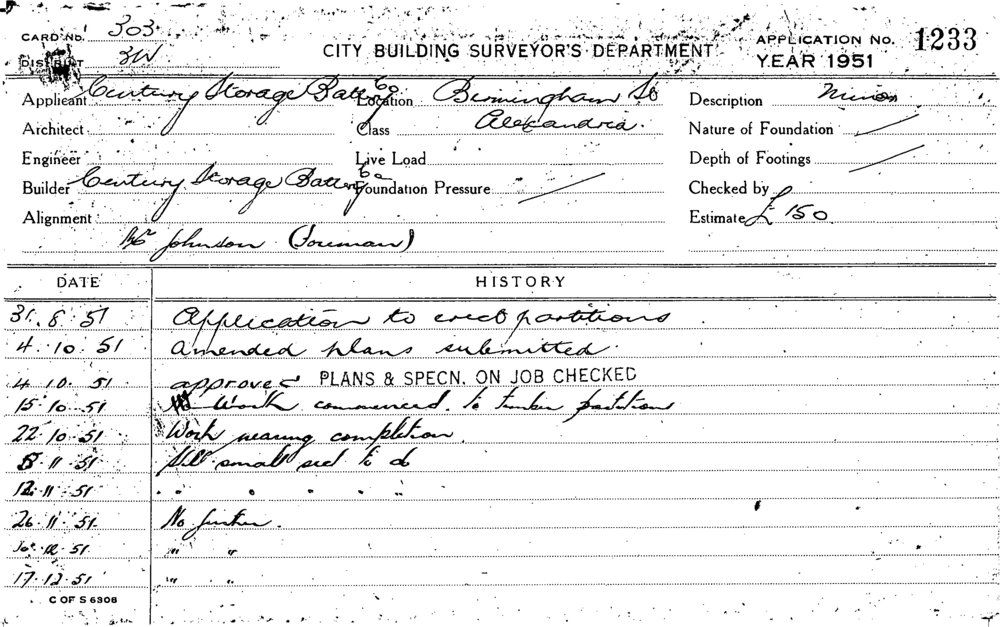 CARD NO. 303
DISTRICT 3W
CITY BUILDING SURVEYOR'S DEPARTMENT
APPLICATION NO. 1233
YEAR 1951
Applicant Century Storage Battery Co Location Birmingham St Description Minor
Architect Class Alexandria. Nature of Foundation
Engineer Live Load Depth of Footings
Builder Century Storage Battery Co Foundation Pressure Checked by
Alignment Estimate £ 150
Mr Johnson (Foreman)
DATE HISTORY
31. 8. 51 Application to erect partitions
4. 10. 51 amended plans submitted.
4 10. 51 approved PLANS & SPECN. ON JOB CHECKED
15. 10. 51 Work commenced. to timber partitions
22. 10. 51 Work nearing completion.
5. 11. 51 Still small sect to do
12. 11. 51 " " " " " "
26. 11. 51. No further.
10. 12. 51. " "
17. 12. 51 " "
C OF S 6308